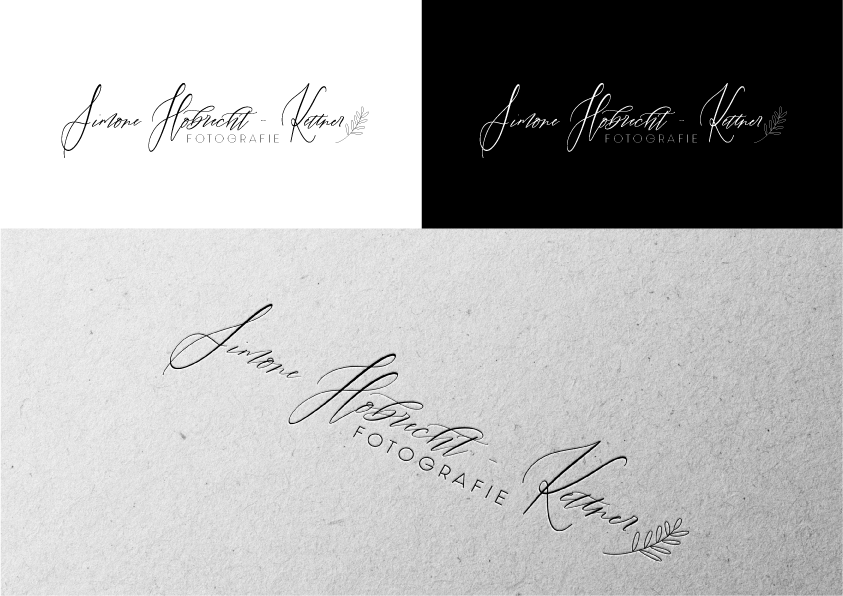 Simone Hobrecht - Kettner
FOTOGRAFIE
Simone Hobrecht - Kettner
FOTOGRAFIE
Simone Hobrecht - Kettner
FOTOGRAFIE